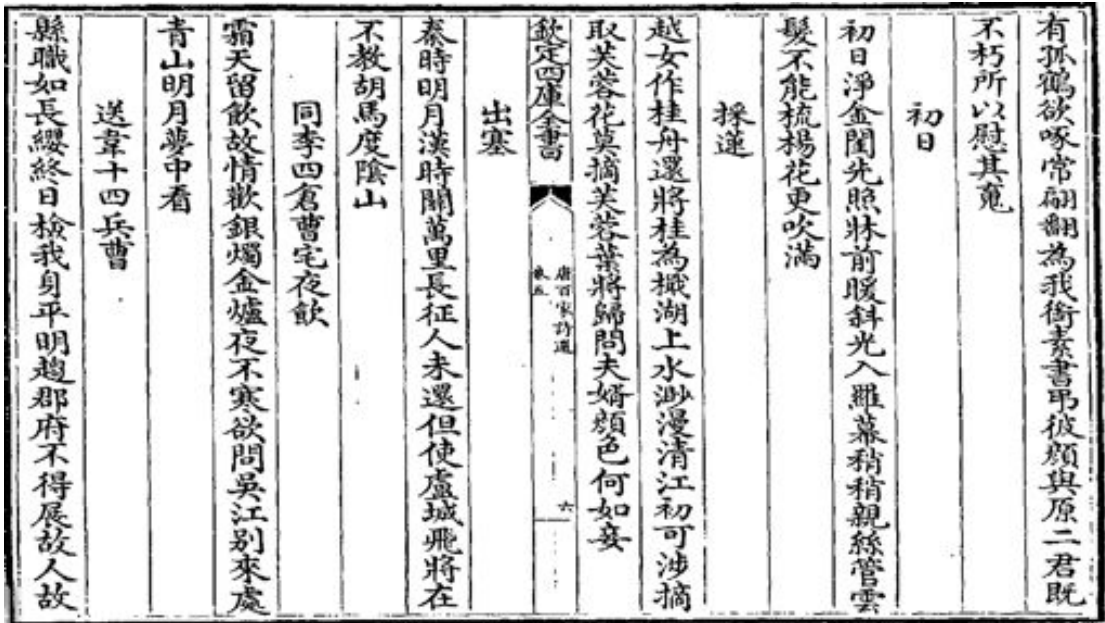 有孤鶴欲啄常翩翻為我銜素書弔彼顔與原二君既
不朽所以慰其䰟
初日
初日淨金閨先照牀前暖斜光入羅幕稍稍親絲管雲
髮不能梳楊花更吹滿
採蓮
越女作桂舟還將桂為檝湖上水渺漫清江初可涉摘
取芙蓉花莫摘芙蓉葉將歸問夫婿顔色何如妾
欽定四庫全書
唐百家詩選
卷五
六
出塞
秦時明月漢時關萬里長征人未還但使盧城飛將在
不教胡馬度陰山
同李四倉曹宅夜飲
霜天留飲故情歡銀燭金爐夜不寒欲問吳江别來處
青山明月夢中看
送韋十四兵曹
縣職如長纓終日檢我身平明趨郡府不得展故人故